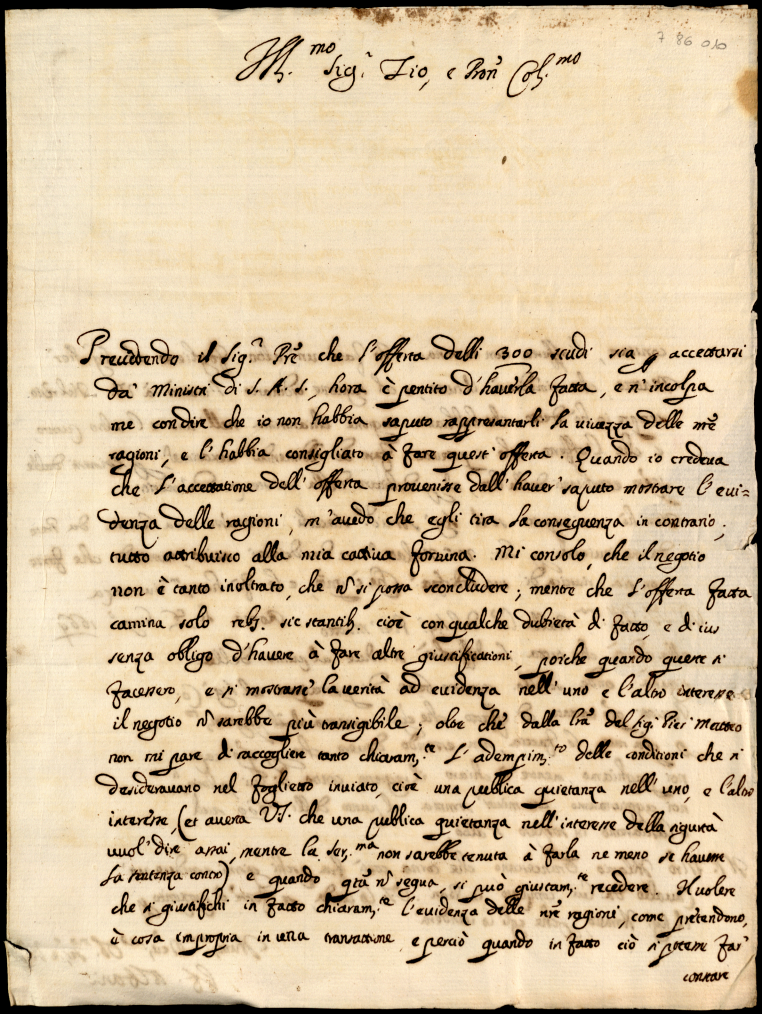 7 86 010
Ill.mo Sig.r Zio, e Pron Col.mo
Prevedendo il Sig.r Pre che l'offerta delli 300 scudi sia p accettarsi
da' Ministri di S. A. S., hora è pentito d'haverla fatta, e n'incolpa
me con dire che io non habbia saputo rappresentarli la vivezza delle nre
ragioni, e l'habbia consigliato à fare quest'offerta. Quando io credeva
che l'accettatione dell'offerta provenisse dall'haver saputo mostrare l'evi=
denza delle ragioni, m'avedo che egli tira la conseguenza in contrario;
tutto attribuisco alla mia cattiva fortuna. Mi consolo, che il negotio
non è tanto inoltrato, che nõ si possa sconcludere; mentre che l'offerta fatta
camina solo reb. sic stantib. cioè con qualche dubietà di fatto, e di ius
senza obligo d'havere à fare altre giustificationi, poiche quando queste si
facessero, e si mostrasse la verità ad evidenza nell'uno e l'altro interesse
il negotio nõ sarebbe più transigibile; oltre che dalla lra del Sig. Pier Matteo
non mi pare di raccogliere tanto chiaram.te l'adempim.to delle conditioni che si
desideravano nel foglietto inviato, cioè una publica quietanza nell'uno, e l'altro
interesse, (et averta V.S. che una publica quietanza nell'interesse della sigurtà
vuol dire assai, mentre la Ser.ma non sarebbe tenuta à farla ne meno se havesse
la sentenza contro) e quando qto nõ segua, si può giustam.te recedere. Il volere
che si giustifichi in fatto chiaram.te l'evidenza delle nre ragioni, come pretendono,
è cosa impropria in una transattione, e perciò quando in fatto ciò si potesse far
constare